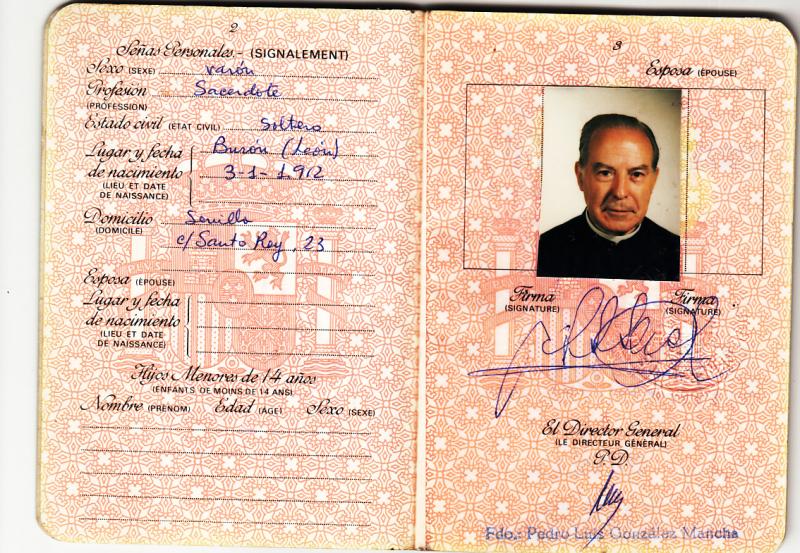 2
Señas Personales.- (SIGNALEMENT)
Sexo (SEXE) varón
Profesion Sacerdote
(PROFESSION)
Estado civil (ETAT CIVIL) Soltero
Lugar y fecha Burón (León)
de nacimiento 3-1-1.912
(LIEU ET DATE
DE NAISSANCE)
Domicilio Sevilla
(DOMICILE)
c/ Santo Rey, 23
Esposa (ÉPOUSE)
Lugar y fecha
de nacimiento
(LIEU ET DATE
DE NAISSANCE)
Hijos Menores de 14 años
(ENFANTS DE MOINS DE 14 ANS)
Nombre (PRÉNOM) Edad (AGE) Sexo (SEXE)
3
Esposa (ÉPOUSE)
Firma
(SIGNATURE)
Firma
(SIGNATURE)
El Director General
(LE DIRECTEUR GÉNÉRAL)
P.D.
Fdo.: Pedro Luis González Mancha